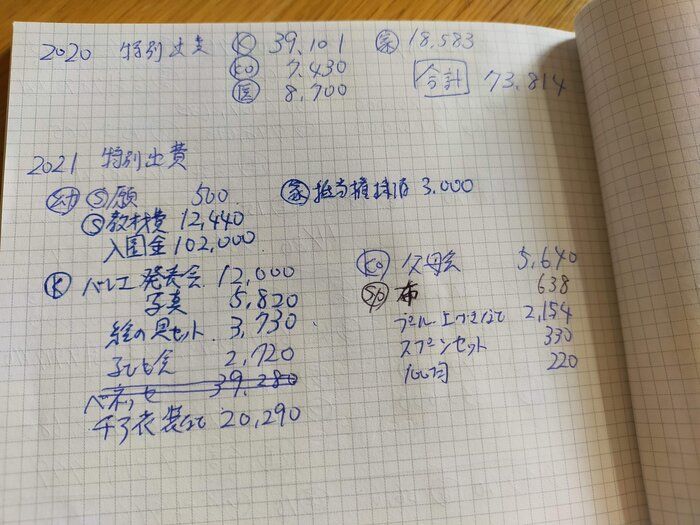 2020 特別出費 Ⓚ 39,101 ㊁家 18,583
Ⓚo 7,430 合計 73,814
医 8,700
2021 特別出費
幼 Ⓢ願 500
Ⓢ教材費 12,440
入園金 102,000
家 抵当権抹消 3,000
Ⓚ バレエ発表会 12,000
写真 5,820
絵の具セット 3,730
子ども会 2,720
ベネッセ 39,280
衣装など 20,290
Ko 父母会 5,640
布 638
プール上づきなど 2,154
スプーンセット 330
100均 220